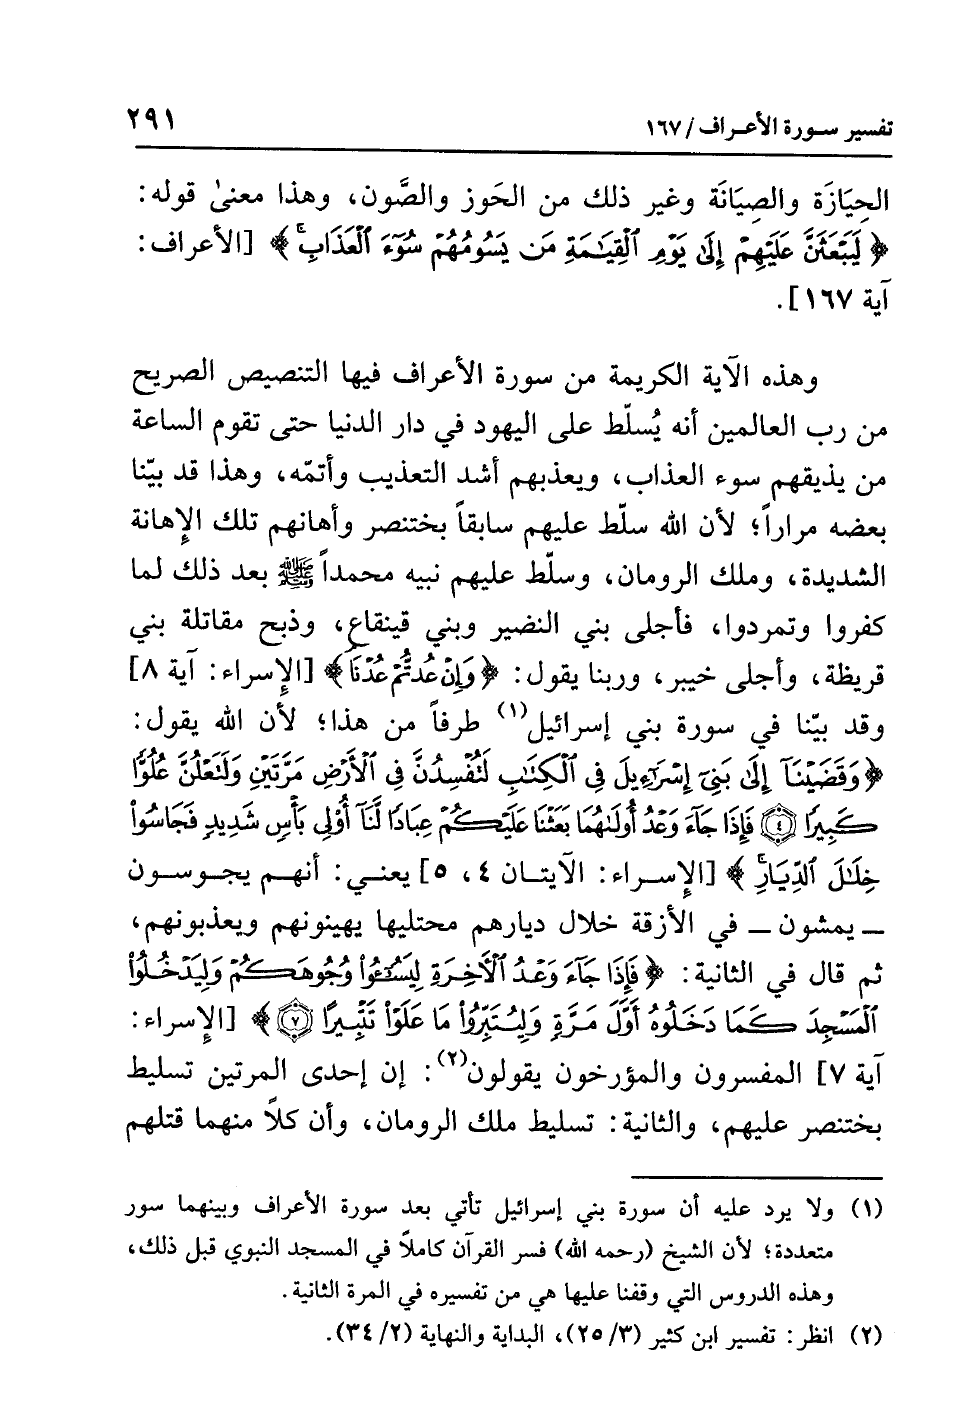 تفسير سورة الأعراف / ١٦٧
٢٩١
الحِيَازَة والصِيَانَة وغير ذلك من الحَوز والصَّون، وهذا معنىٰ قوله:
﴿ لَيَبْعَثَنَّ عَلَيْهِمْ إِلَىٰ يَوْمِ ٱلْقِيَٰمَةِ مَن يَسُومُهُمْ سُوٓءَ ٱلْعَذَابِ ۗ ﴾ [الأعراف:
آية ١٦٧].
وهذه الآية الكريمة من سورة الأعراف فيها التنصيص الصريح
من رب العالمين أنه يُسلّط على اليهود في دار الدنيا حتى تقوم الساعة
من يذيقهم سوء العذاب، ويعذبهم أشد التعذيب وأتمّه، وهذا قد بيّنا
بعضه مراراً؛ لأن الله سلّط عليهم سابقاً بختنصر وأهانهم تلك الإهانة
الشديدة، وملك الرومان، وسلّط عليهم نبيه محمداً ﷺ بعد ذلك لما
كفروا وتمردوا، فأجلى بني النضير وبني قينقاع، وذبح مقاتلة بني
قريظة، وأجلى خيبر، وربنا يقول: ﴿ وَإِنْ عُدتُّمْ عُدْنَا ﴾ [الإسراء: آية ٨]
وقد بيّنا في سورة بني إسرائيل(١) طرفاً من هذا؛ لأن الله يقول:
﴿ وَقَضَيْنَآ إِلَىٰ بَنِىٓ إِسْرَٰٓءِيلَ فِى ٱلْكِتَٰبِ لَتُفْسِدُنَّ فِى ٱلْأَرْضِ مَرَّتَيْنِ وَلَتَعْلُنَّ عُلُوًّا
كَبِيرًا ﴿٤﴾ فَإِذَا جَآءَ وَعْدُ أُولَىٰهُمَا بَعَثْنَا عَلَيْكُمْ عِبَادًا لَّنَآ أُوْلِى بَأْسٍ شَدِيدٍ فَجَاسُوا۟
خِلَٰلَ ٱلدِّيَارِ ۚ ﴾ [الإسراء: الآيتان ٤، ٥] يعني: أنهم يجوسون
ـ يمشون ـ في الأزقة خلال ديارهم محتليها يهينونهم ويعذبونهم،
ثم قال في الثانية: ﴿ فَإِذَا جَآءَ وَعْدُ ٱلْأَخِرَةِ لِيَسُۥٓـُٔوا۟ وُجُوهَكُمْ وَلِيَدْخُلُوا۟
ٱلْمَسْجِدَ كَمَا دَخَلُوهُ أَوَّلَ مَرَّةٍ وَلِيُتَبِّرُوا۟ مَا عَلَوْا۟ تَتْبِيرًا ﴿٧﴾ ﴾ [الإسراء:
آية ٧] المفسرون والمؤرخون يقولون(٢): إن إحدى المرتين تسليط
بختنصر عليهم، والثانية: تسليط ملك الرومان، وأن كلاً منهما قتلهم
(١) ولا يرد عليه أن سورة بني إسرائيل تأتي بعد سورة الأعراف وبينهما سور
متعددة؛ لأن الشيخ (رحمه الله) فسر القرآن كاملاً في المسجد النبوي قبل ذلك،
وهذه الدروس التي وقفنا عليها هي من تفسيره في المرة الثانية.
(٢) انظر: تفسير ابن كثير (٣/ ٢٥)، البداية والنهاية (٢/ ٣٤).